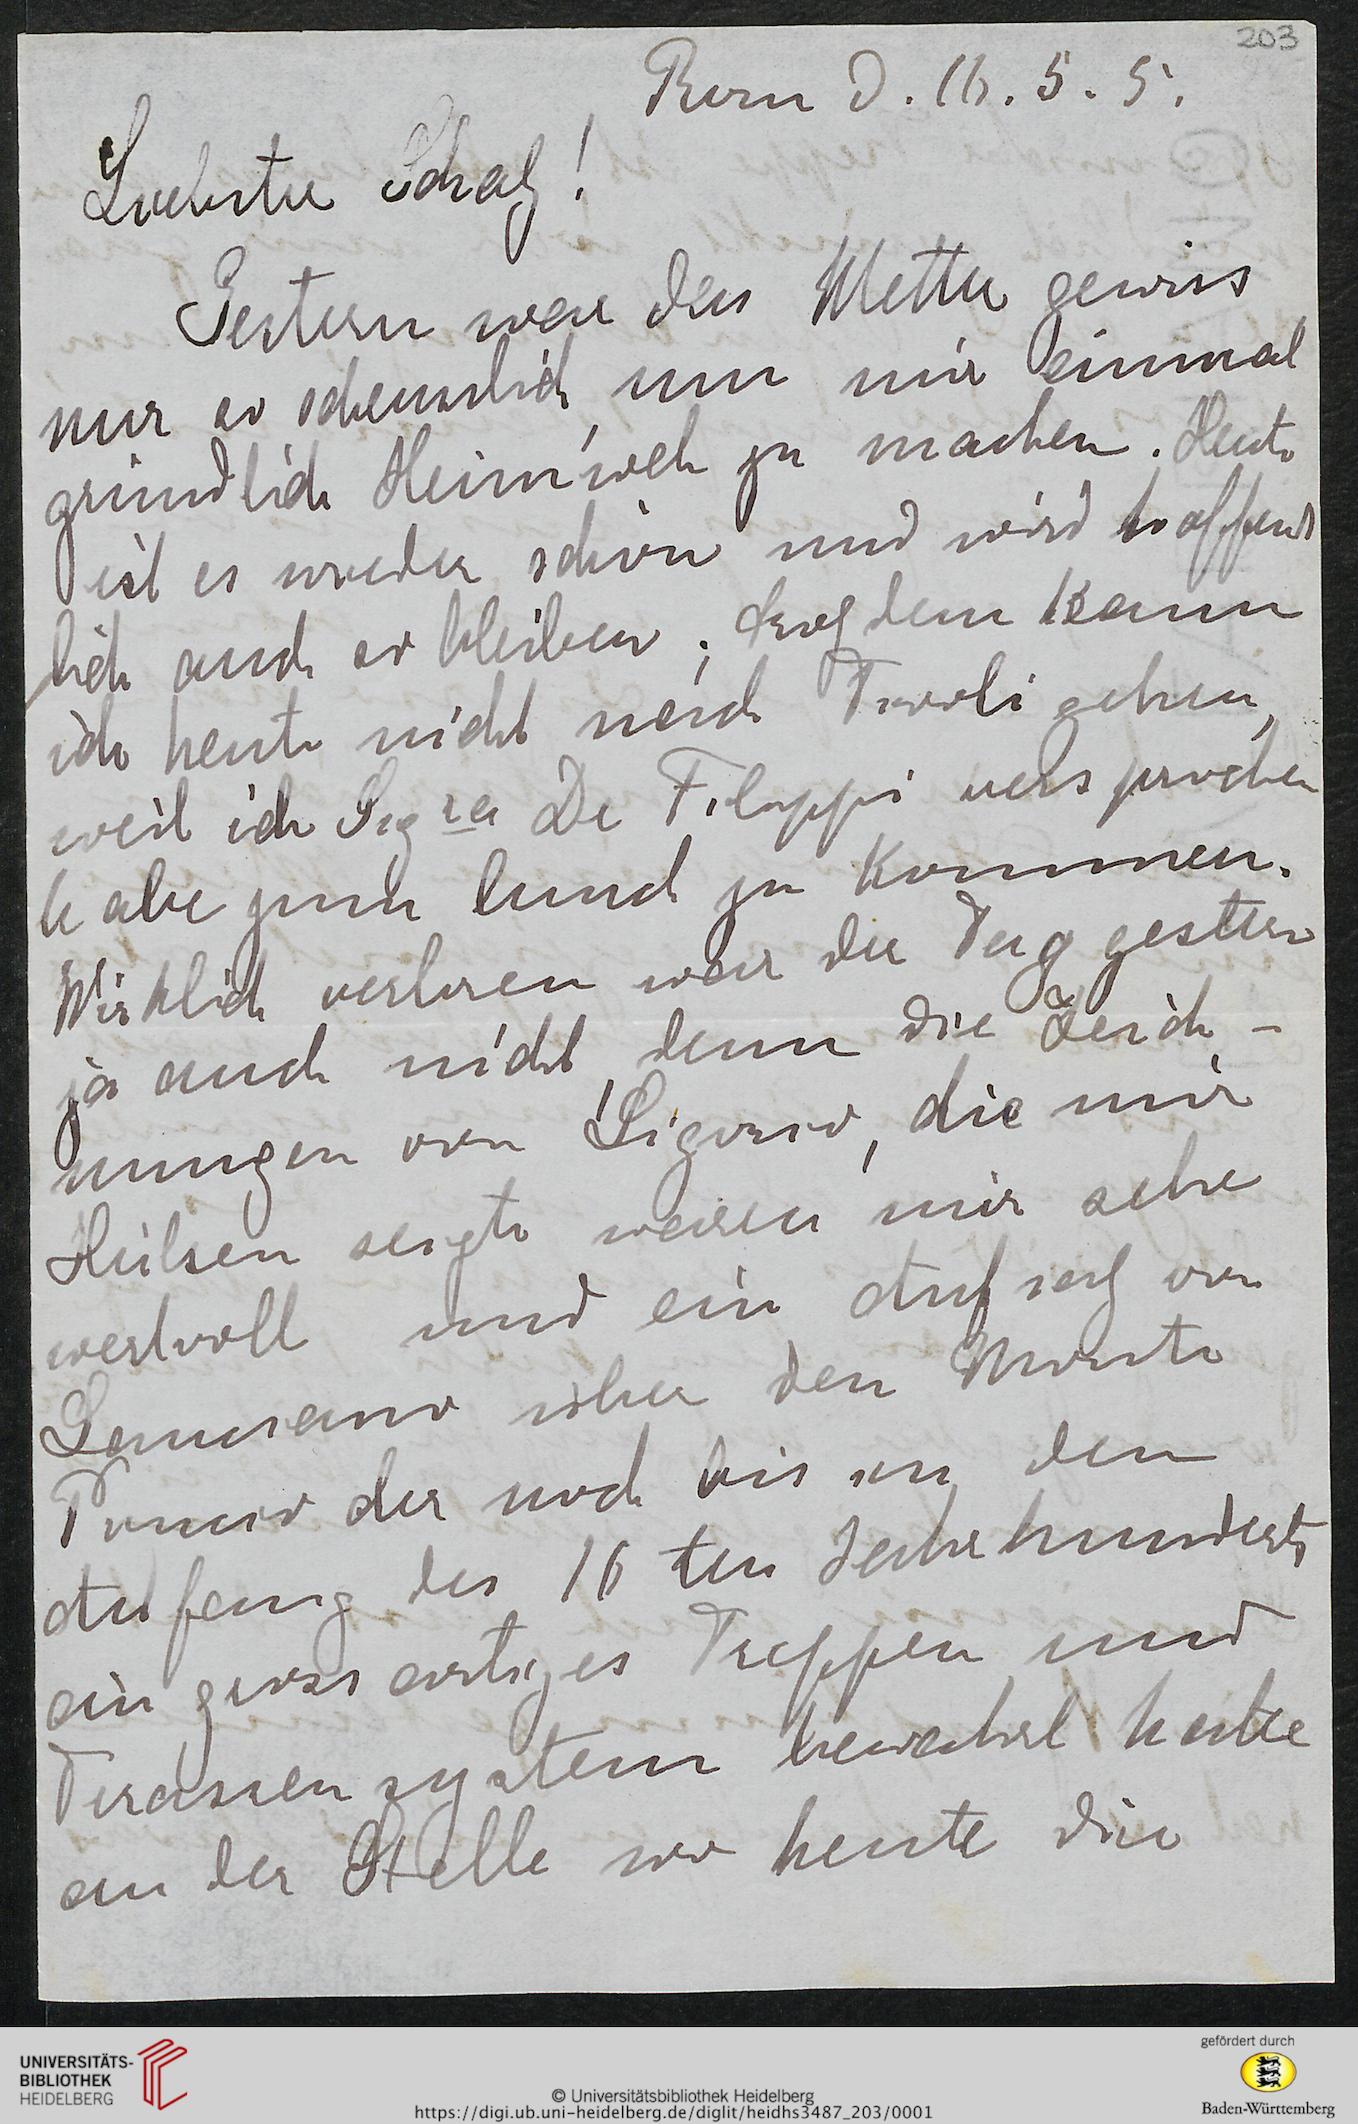 203
Rom d. 16. 5. 5.
Liebster Schatz!
Gestern war das Wetter gewiss
nur so scheusslich, um mir einmal
gründlich Heimweh zu machen. Heute
ist es wieder schön und wird hoffent
lich auch so bleiben; trotzdem kann
ich heute nicht nach Tivoli gehen,
weil ich Sigra De Filippi versprochen
habe zum lunch zu kommen.
Wirklich verloren war der Tag gestern
ja auch nicht, denn die Zeich-
nungen von Ligorio, die mir
Hülsen zeigte waren mir sehr
wertvoll und ein Aufsatz von
Lanciani über den Monte
Pincio der noch bis an den
Anfang des 16 ten Jahrhunderts
ein grossartiges Treppen und
Terassensystem bewahrt hatte
an der Stelle wo heute die
UNIVERSITÄTS-
BIBLIOTHEK
HEIDELBERG
© Universitätsbibliothek Heidelberg
https://digi.ub.uni-heidelberg.de/diglit/heidhs3487_203/0001
gefördert durch
Baden-Württemberg